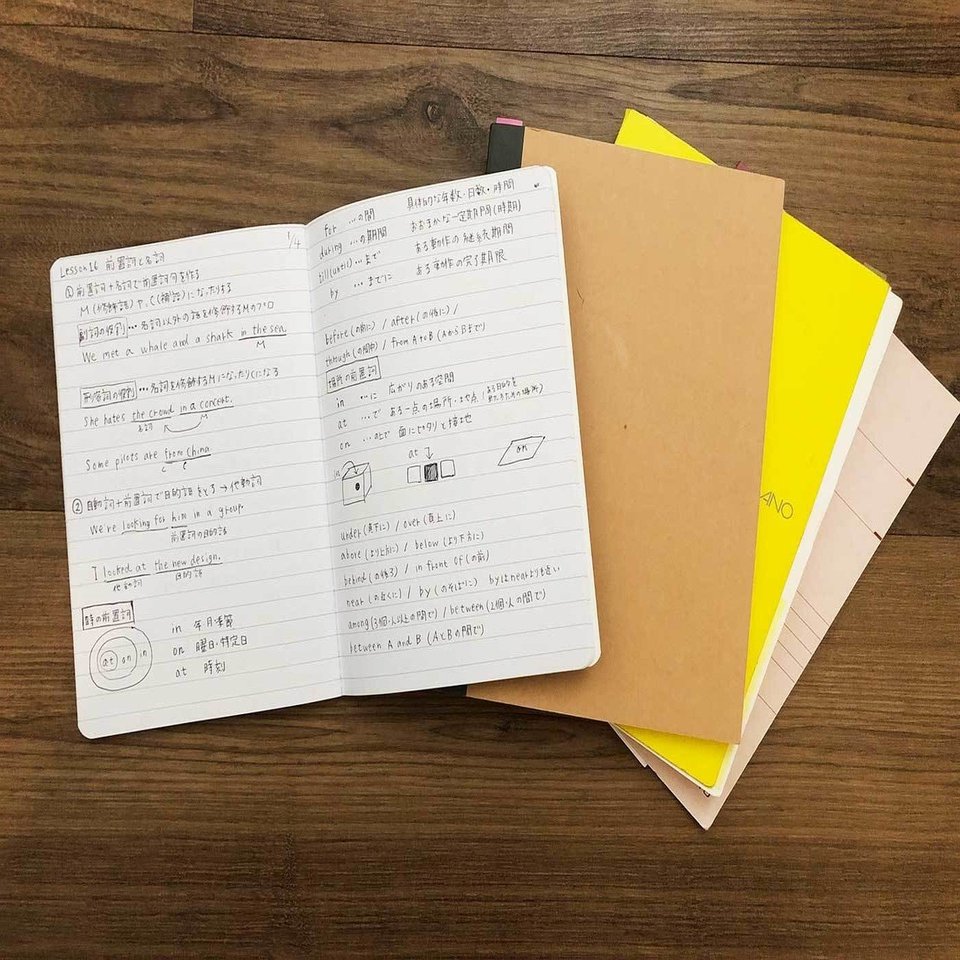 1/4
Lesson16 前置詞と名詞
① 前置詞+名詞で前置詞句を作る
M(修飾語)や、C(補語)になったりする
副詞の役割…名詞以外の語を修飾するMのプロ
We met a whale and a shark in the sea.
M
形容詞の役割…名詞を修飾するMになったりCになる
She hates the crowd in a concert.
名詞 M
Some pilots are from China
C
② 自動詞+前置詞で目的語をとる→他動詞
We're looking for him in a group.
前置詞の目的語
I looked at the new design.
他動詞 目的語
時の前置詞
at on in
in 年・月・季節
on 曜日・特定日
at 時刻
for …の間 具体的な年数・日数・時間
during …の期間 おおまかな一定期間(時期)
till(until)…まで ある動作の継続期間
by …までに ある動作の完了期限
before(の前に) / after(の後に) /
through(の間中) / from A to B (AからBまで)
場所の前置詞
in …に 広がりのある空間
at …で ある一点の場所・地点(ある目的を果たすための場所)
on …の上で 面にピタリと接地
in at↓ on
under(真下に) / over(真上に)
above(より上方に) / below(より下方に)
behind(の後ろ) / in front of(の前)
near(の近くに) / by(のそばに) byはnearよりも近い
among(3個・人以上の間で) / between(2個・人の間で)
between A and B (AとBの間で)
ANO